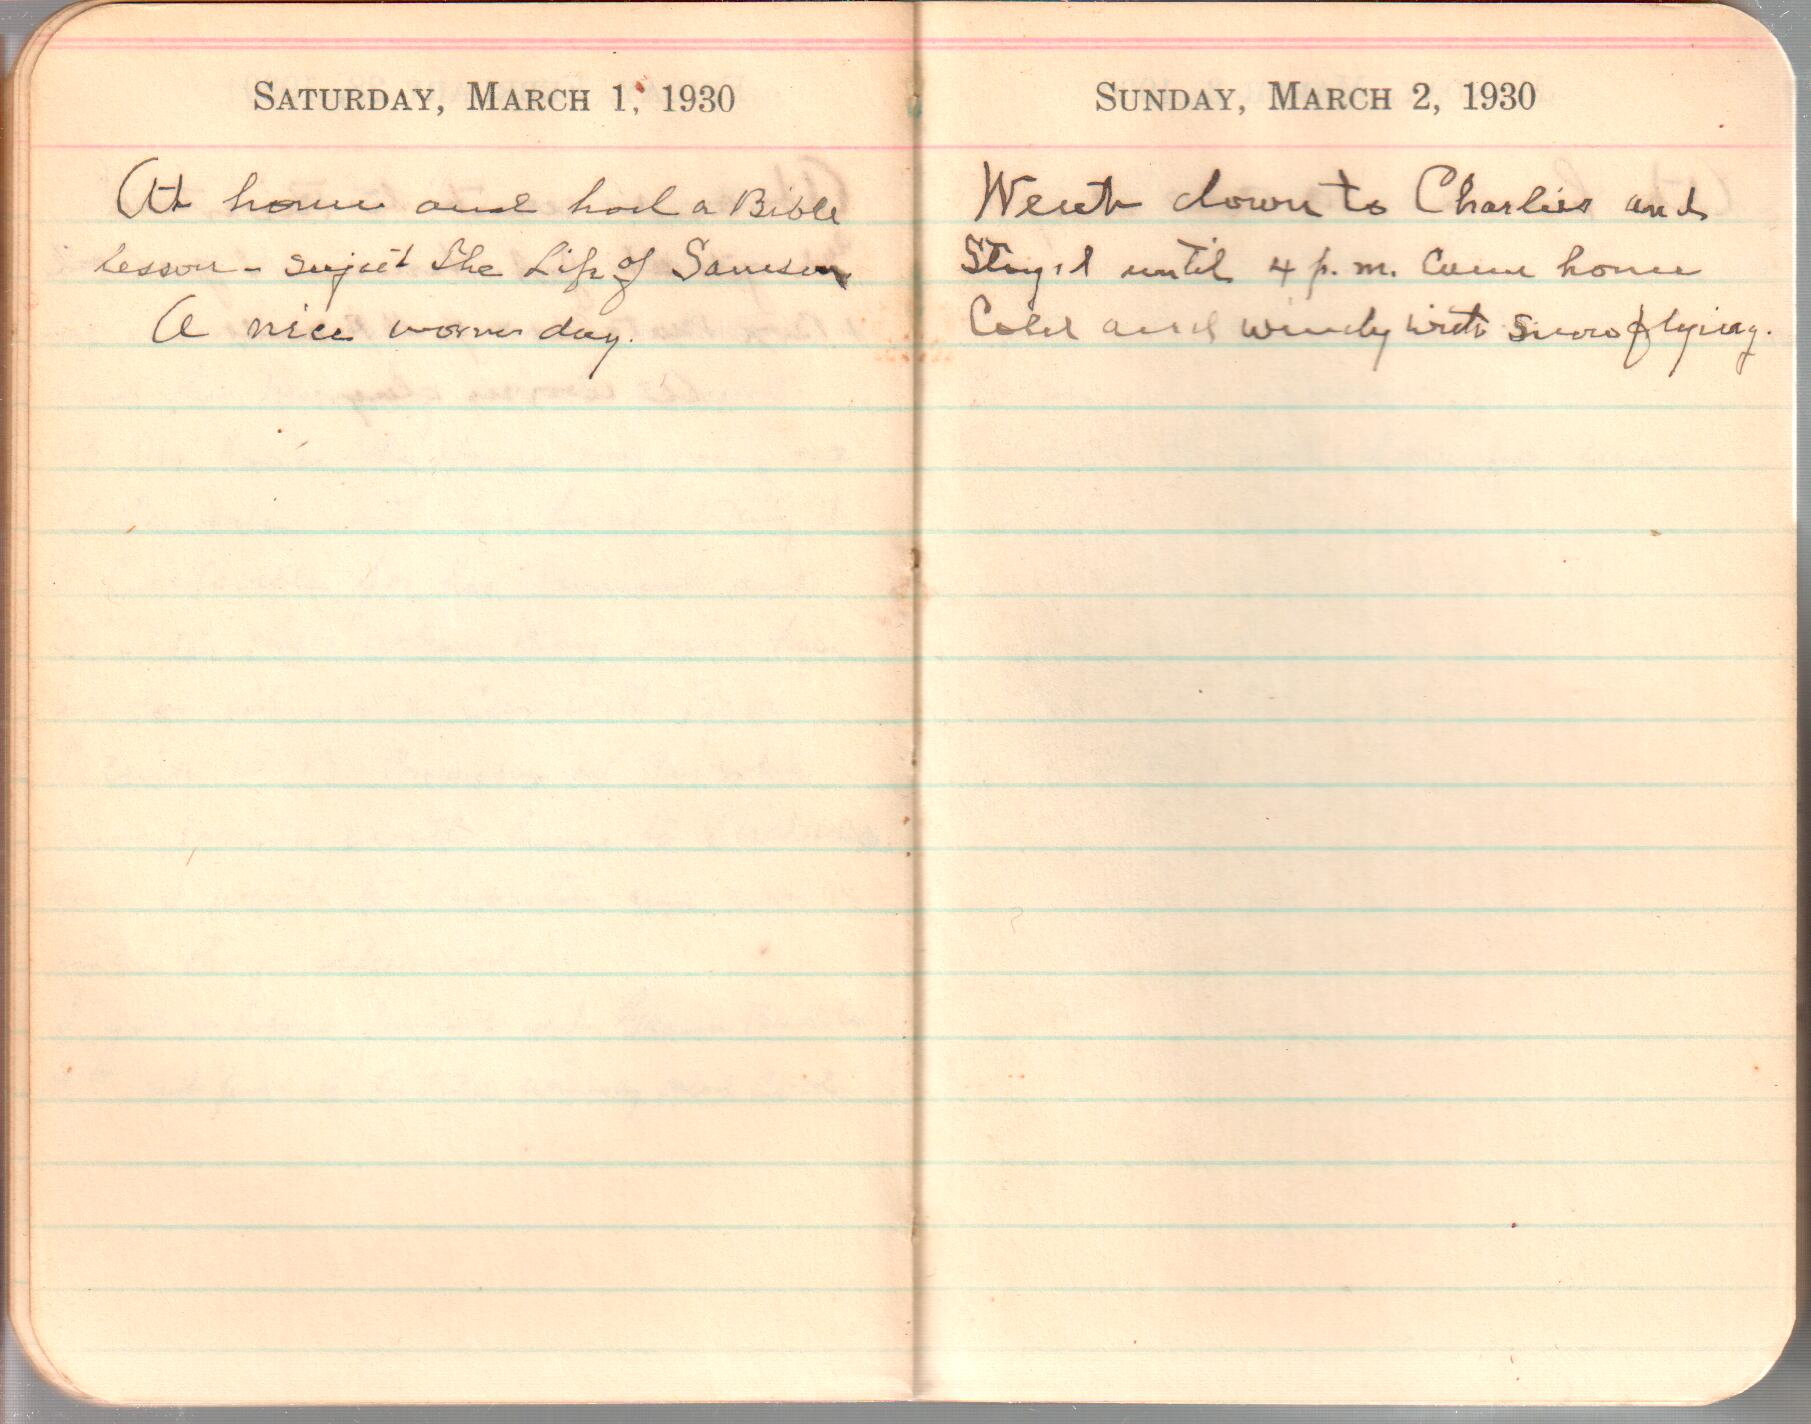 SATURDAY, MARCH 1, 1930
At home and had a Bible
lesson - sujcit The Life of Samson
A nice warm day.
SUNDAY, MARCH 2, 1930
Went down to Charlies and
Stayed until 4 p.m. Came home
Cold and windy with snow flying.